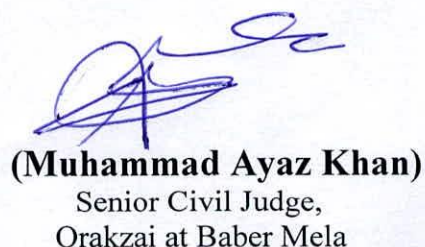 (Muhammad Ayaz Khan)
Senior Civil Judge,
Orakzai at Baber Mela